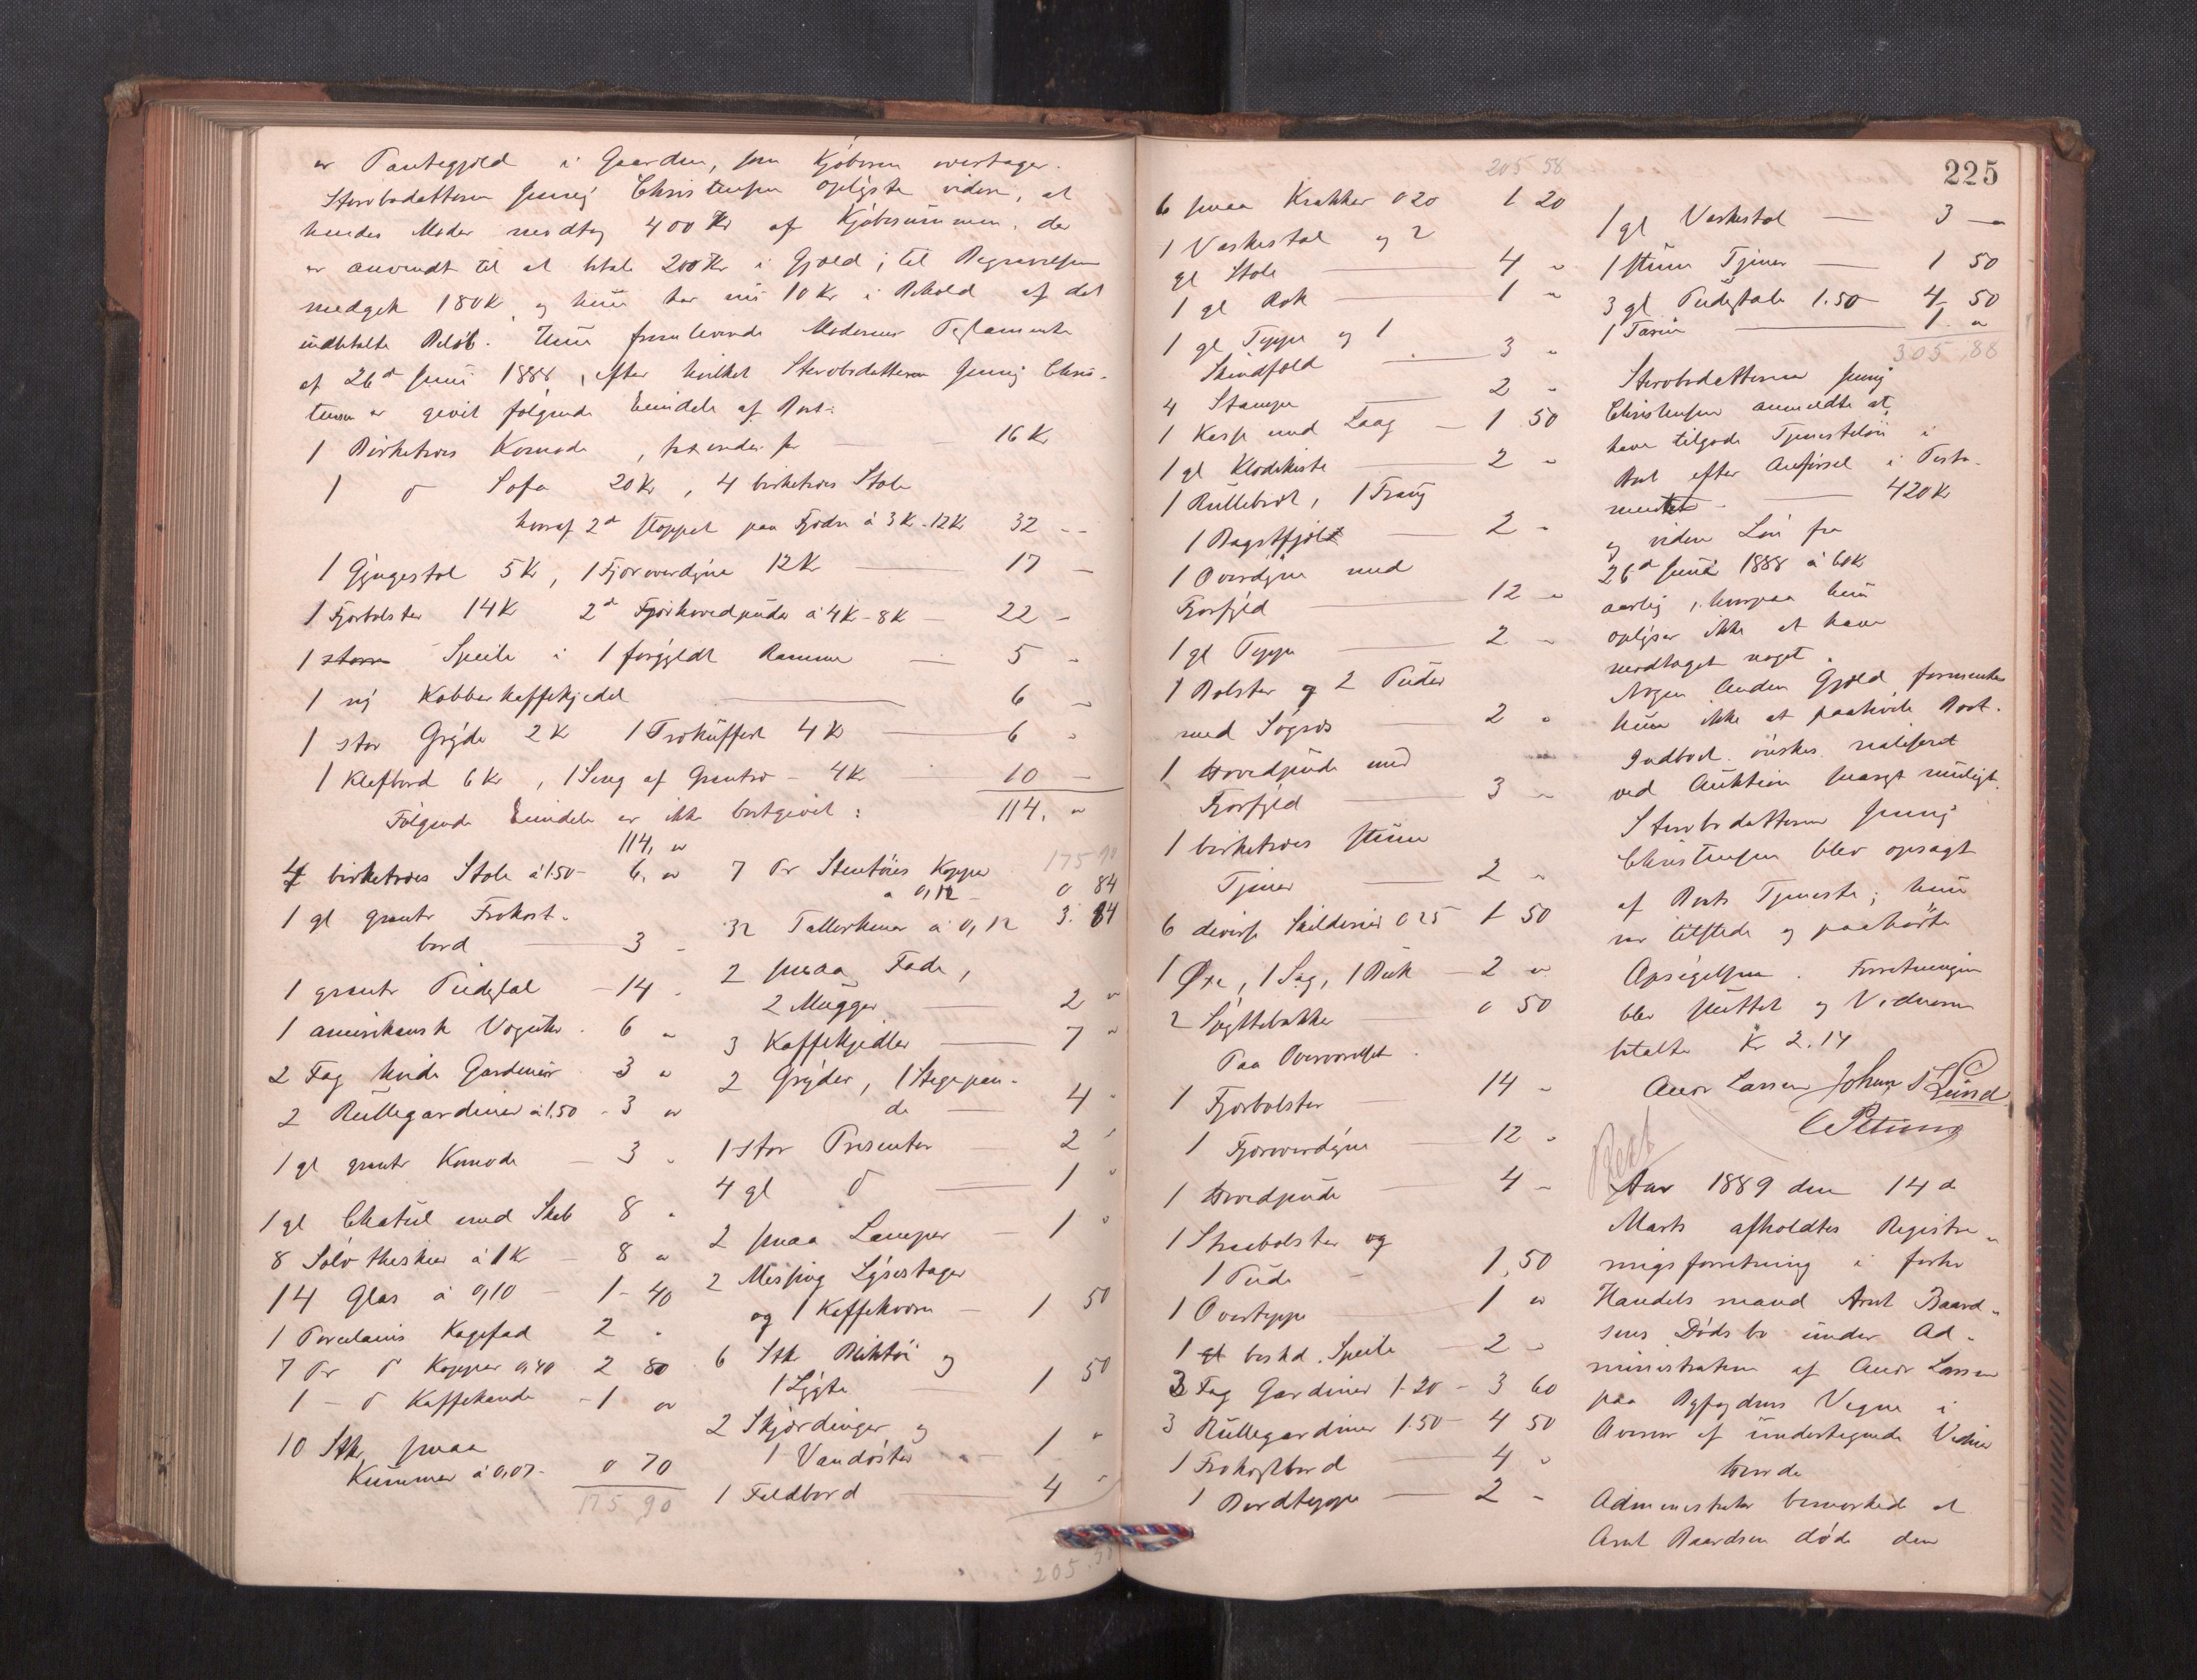 er Pantegjæld i Gaarden, som Kjøberen overtager.
Stervbodatteren Jenny Christensen oplyste videre, at
hendes Moder modtog 400 Kr af Kjøbesummen, der
er anvendt til at betale 200 Kr i Gjæld; til Begravelsen
medgik 180 K, og hun har nu 10 Kr i Behold af det
indbetalte Beløb. Hun fremleverede Moderens Testamente
af 26d Juni 1888, efter hvilket Stervbodatteren Jenny Chris-
tensen er givet følgende Eiendele af Boet:
1 Birketræes Komode, taxeredes for — 16 Kr
1 do Sofa 20 Kr, 4 birketræes Stole
hvoraf 2d stoppet paa Fjædre á 3 K - 12 K 32 -
1 Gyngestol 5 Kr, 1 Fjæroverdyne 12 Kr — 17 -
1 Fjærbolster 14 K 2d Fjærhovedpuder á 4 K - 8 K — 22 -
1 større Speile i 1 forgyldt Ramme — 5 -
1 ny Kobberkaffekjedel — 6 -
1 stor Gryde 2 K 1 Trækuffert 4 K — 6 -
1 Klafbord 6 Kr, 1 Seng af Grantræ - 4 Kr 10 -
Følgende Eiendele er ikke bortgivet: 114, "
114, "
4 birketræes Stole á 1.50 - 6, "
1 gl grantr Frokost-
bord — 3 -
1 grantr Pidestal — 14 -
1 amerikansk Væguhr - 6 "
2 Fag hvide Gardiner - 3 "
2 Rullegardiner á 1.50 - 3 "
1 gl grantr Komode — 3 "
1 gl Chatul med Skab 8 "
8 Sølv theskeer á 1 K — 8 "
14 Glas á 0,10 — 1 - 40
1 Porcelains Kagefad 2 "
7 Pr do Kopper 0,40 2 80
1 - do Kaffekande - 1 "
10 Stk smaa
Kummer á 0,07 - 0 70
175 90
175 90
7 Pr Stentøies Kopper
á 0,12 - 0 84
32 Tallerkener á 0,12 3. 84
2 smaa Fade,
2 Mugger — 2 "
3 Kaffekjedler — 7 "
2 Gryder, 1 Stegepan-
de — 4 "
1 stor Presenter — 2 "
4 gl do — 1 "
2 smaa Lamper — 1 "
2 Messing Lysestager
og 1 Kaffekværn — 1 50
6 Stk Bliktøi og
1 Lygte 1 50
2 Skjærdinger og
1 Vandøster — 1 "
1 Feldbord — 4 "
205.58
225
205 58
6 smaa Krakker 0 20 1 20
1 Vaskestol og 2
gl Stole — 4 "
1 gl Rok — 1 "
1 gl Teppe og 1
Skindfeld — 3 "
4 Stamper — 2 "
1 Kasse med Laag — 1 50
1 gl Klædekiste — 2 "
1 Rullebræt, 1 Traug
1 Bagstfjøl — 2 "
1 Overdyne med
Fjærfyld — 12 "
1 gl Teppe — 2 "
1 Bolster og 2 Puder
med Søgræs — 2 "
1 Hovedpude med
Fjærfyld — 3 "
1 birketræes
Tjener — 2 "
6 diverse Skilderier 0 25 1 50
1 Øxe, 1 Sag, 1 — 2 "
2 Spyttebakker — 0 50
Paa Overværelset
1 Fjærbolster — 14 "
1 Fjæroverdyne — 12 "
1 Hovedpude — 4 "
1 Straabolster og
1 Pude - 1,50
1 Overteppe — 1 "
1 Speile — 2 "
3 Fag Gardiner 1.20 - 3 60
3 Rullegardiner 1.50 - 4 50
1 Frokostbord — 4 "
1 Bordteppe — 2 "
1 gl Vaskestol — 3 "
1 Tjener — 1 50
3 gl Pidestale 1.50 - 4, 50
1 — 1. "
305,88
Stervbodatteren Jenny
Christensen anmeldte at
have tilgode Tjenesteløn i
Boet efter Anførsel i Testa-
mentet — 420 Kr
og videre Løn fra
26d Juni 1888 á 60 K
aarlig, hvorpaa hun
oplyser ikke at have
modtaget noget.
Nogen Anden Gjæld formentes
hun ikke at paahvile Boet.
Indboet ønskes realiseret
ved Auktion snarest muligt.
Stervbodatteren Jenny
Christensen blev opsagt
af Boets Tjeneste; hun
var tilstede og paahørte
Opsigelsen. Forretningen
blev sluttet og Vidnerne
betalte Kr 2.14
Andr Larsen Johan S Lund
Aar 1889 den 14 d
Marts afholdtes Registre-
ringsforretning i forhv
Handelsmand Arnt Baard-
sens Dødsbo under Ad-
ministration af Andr Larsen
paa Byfogdens Vegne i
Overvær af undertegnede Vidner
Administrator bemærkede at
Arnt Baardsen døde den